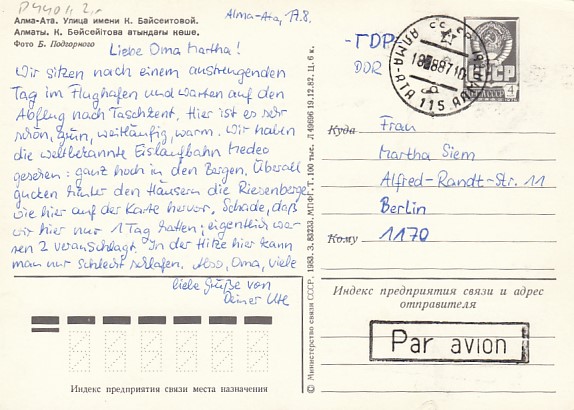 Алма-Ата. Улица имени К. Байсеитовой.
Алматы. К. Бейсейітова атындағы көше.
Фото Б. Подгорного
Alma-Ata, 17.8.
Liebe Oma Martha!
Wir sitzen nach einem anstrengenden
Tag im Flughafen und warten auf den
Abflug nach Taschkent. Hier ist es sehr
schön, grün, weitläufig, warm. Wir haben
die weltbekannte Eislaufbahn Medeo
gesehen: ganz hoch in den Bergen. Überall
gucken hinter den Häusern die Riesenberge
wie hier auf der Karte hervor. Schade, daß
wir hier nur 1 Tag hatten; eigentlich wa-
ren 2 veranschlagt. In der Hitze hier kann
man nur schlecht schlafen. Also, Oma, viele
liebe Grüße von
Deiner Ute
Индекс предприятия связи места назначения
© Министерство связи СССР, 1983. З. 83233. МПФГ. Т. 100 тыс. Л 49696 19.12.82. Ц. 6 к.
-GDR-
DDR
СССР
АЛМА-АТА 115
4
Куда
Frau
Martha Siem
Alfred-Randt-Str. 11
Berlin
Кому
1170
Индекс предприятия связи и адрес
отправителя
Par avion